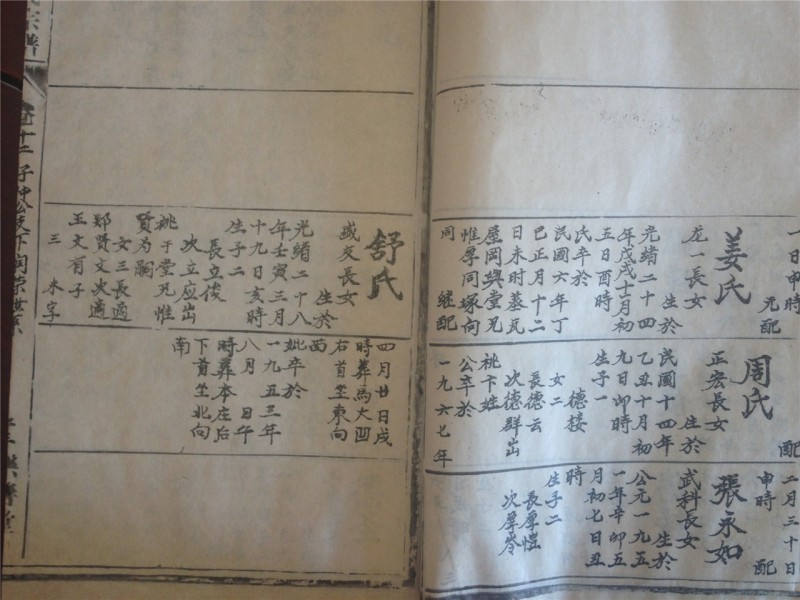 一日申時
元配
姜氏
龙一長女
生於
光緒二十四
年戊戌十一月初
五日酉時
氏卒於
民國六年丁
巳正月十二
日未时墓瓦
屋岡與堂兄
惟厚同塚向
同 继配
配
周氏
正宏長女
生於
民國十四年
乙丑十月初
九日卯時
生子一
德接
女二
長德云
次德群出
祧卞姓
公卒於
一九六七年
二月三十日
申時 配
張永如
武科長女
生於
公元一九五
一年辛卯五
月初七日丑
時
生子二
長厚愷
次厚岑
舒氏
盛交長女
生於
光緒二十八
年壬寅三月
十九日亥時
生子二
長立俊
次立应出
祧于堂兄惟
賢为嗣
女三長適
郑賢文次適
王文有子
三 未字
四月廿日戌
時葬馬大凹
右首坐東向
西
妣卒於
一九五三年
八月 日午
時葬本庄后
下首坐北向
南
宗譜
卷十二 子仲公支下 世系